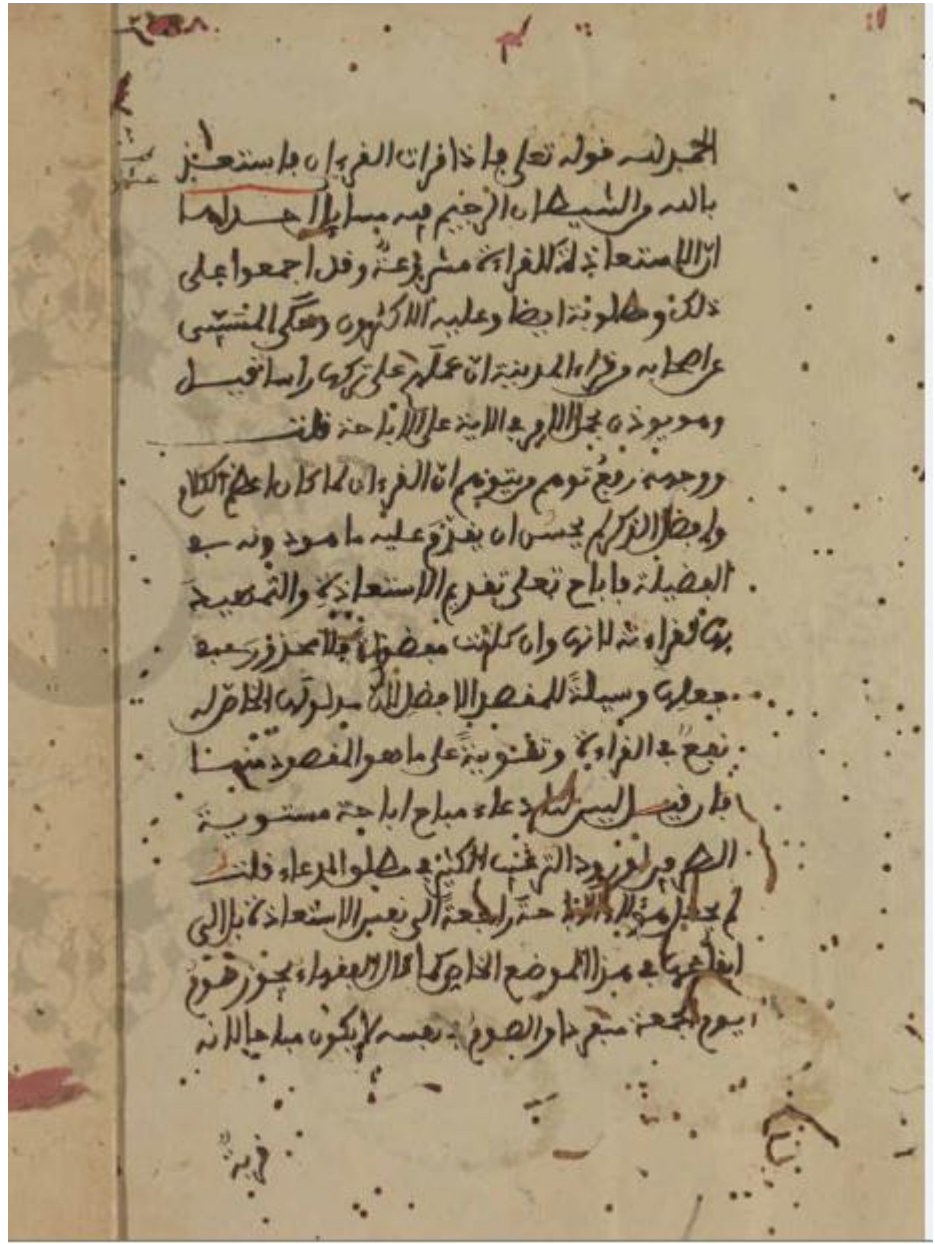 الحمد لله قوله تعلى فإذا قرات القرءان فاستعذ
بالله من الشيطان الرجيم فيه مسايل احداها
ان الاستعاذة للقراءة مشروعة وقد اجمعوا على
ذلك ومطلوبة ايضا وعليه الاكثرون وحكى
عن اصحابه وقراء المدينة ان عملهم على تركها راسا قيل
وهو يوذن بحمل الامر في الاية على الاباحة قلت
ووجهه رفع توهم من يتوهم ان القرءان لما كان اعظم الكلام
وافضل الذكر لم يحسن ان يقدم عليه ما هو دونه في
الفضيلة فاباح تعلى تقديم الاستعاذة والتمهيد
بها لقراءته لانها وان كانت مفضولة فلا محذور في
جعلها وسيلة للمقصد الافضل لان مدلولها الخاص له
نفع في القراءة وتقوية على ما هو المقصود منها
فان قيل ليس لنا دعاء مباح اباحة مستوية
الطرفين لورود الترغيب الكثير في مطلق الدعاء قلت
لم نجعل هذه الاباحة راجعة الى نفس الاستعاذة بل الى
ايقاعها في هذا الموضع الخاص كما قال الفقهاء يجوز صوم
يوم الجمعة منفردا والصوم في نفسه لا يكون مباحا لانه
قربة